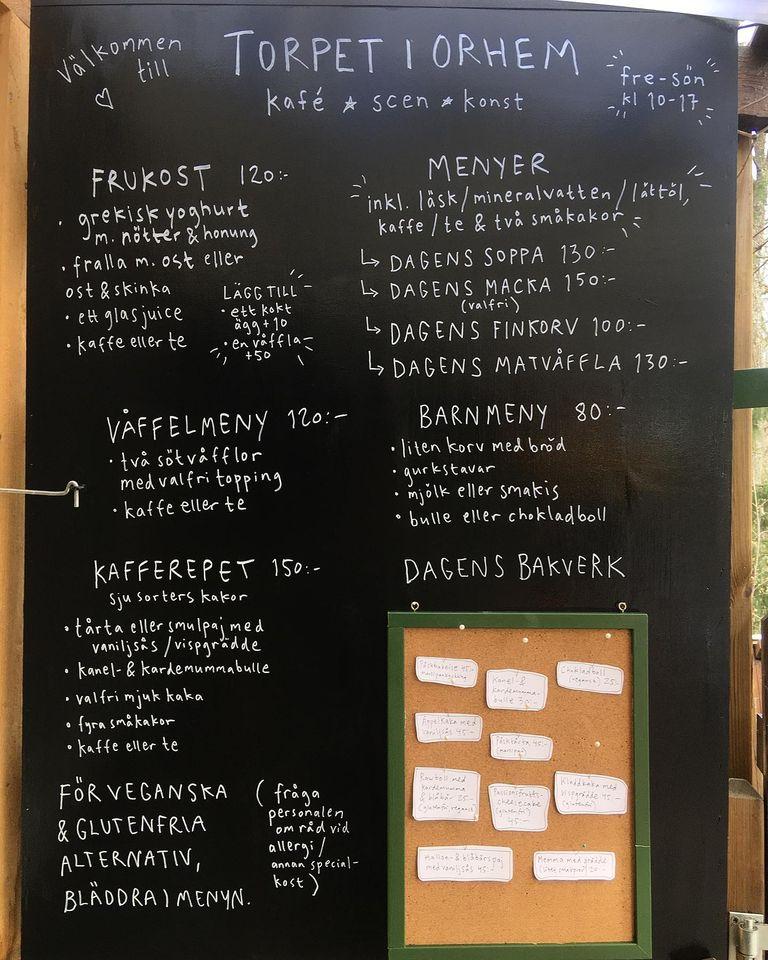 Välkommen
till
TORPET I ORHEM
kafé ★ scen ★ konst
fre-sön
kl 10-17
FRUKOST 120:-
• grekisk yoghurt
m. nötter & honung
• fralla m. ost eller
ost & skinka
• ett glas juice
• kaffe eller te
LÄGG TILL
• ett kokt
ägg +10
• en våffla
+50
MENYER
inkl. läsk/mineralvatten/lättöl,
kaffe/te & två småkakor
↳ DAGENS SOPPA 130:-
↳ DAGENS MACKA 150:-
(valfri)
↳ DAGENS FINKORV 100:-
↳ DAGENS MATVÅFFLA 130:-
VÅFFELMENY 120:-
• två sötvåfflor
med valfri topping
• kaffe eller te
BARNMENY 80:-
• liten korv med bröd
• gurkstavar
• mjölk eller smakis
• bulle eller chokladboll
KAFFEREPET 150:-
sju sorters kakor
• tårta eller smulpaj med
vaniljsås/vispgrädde
• kanel- & kardemummabulle
• valfri mjuk kaka
• fyra småkakor
• kaffe eller te
FÖR VEGANSKA
& GLUTENFRIA
ALTERNATIV,
BLÄDDRA I MENYN.
(fråga
personalen
om råd vid
allergi/
annan special-
kost)
DAGENS BAKVERK
45:-
Kanel- &
kardemumma-
bulle 35:-
Chokladboll
(vegansk) 25:-
Äppelkaka med
vaniljsås 45:-
Påsktårta 45:-
(marsipan)
Rawboll med
kardemumma
& blåbär 35:-
(glutenfri, vegansk)
Passionsfrukts-
cheesecake
(glutenfri)
45:-
Kladdkaka med
vispgrädde 45:-
(glutenfri)
Hallon- & blåbärspaj
med vaniljsås 45:-
Memma med grädde
20:-